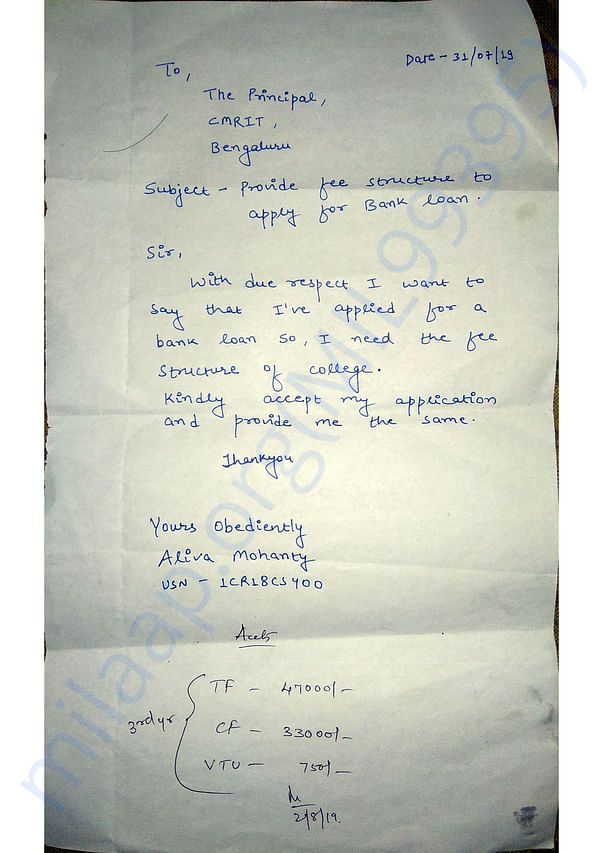 Date - 31/07/19
To,
The Principal,
CMRIT,
Bengaluru
Subject - Provide fee structure to
apply for Bank loan.
Sir,
With due respect I want to
say that I've applied for a
bank loan so, I need the fee
structure of college.
Kindly accept my application
and provide me the same.
Thankyou
Yours Obediently
Aliva Mohanty
USN - 1CR18CS400
TF - 47000/-
3rd yr
CF - 33000/-
VTU - 750/-
2/8/19.
milaap.org(MIL99395)